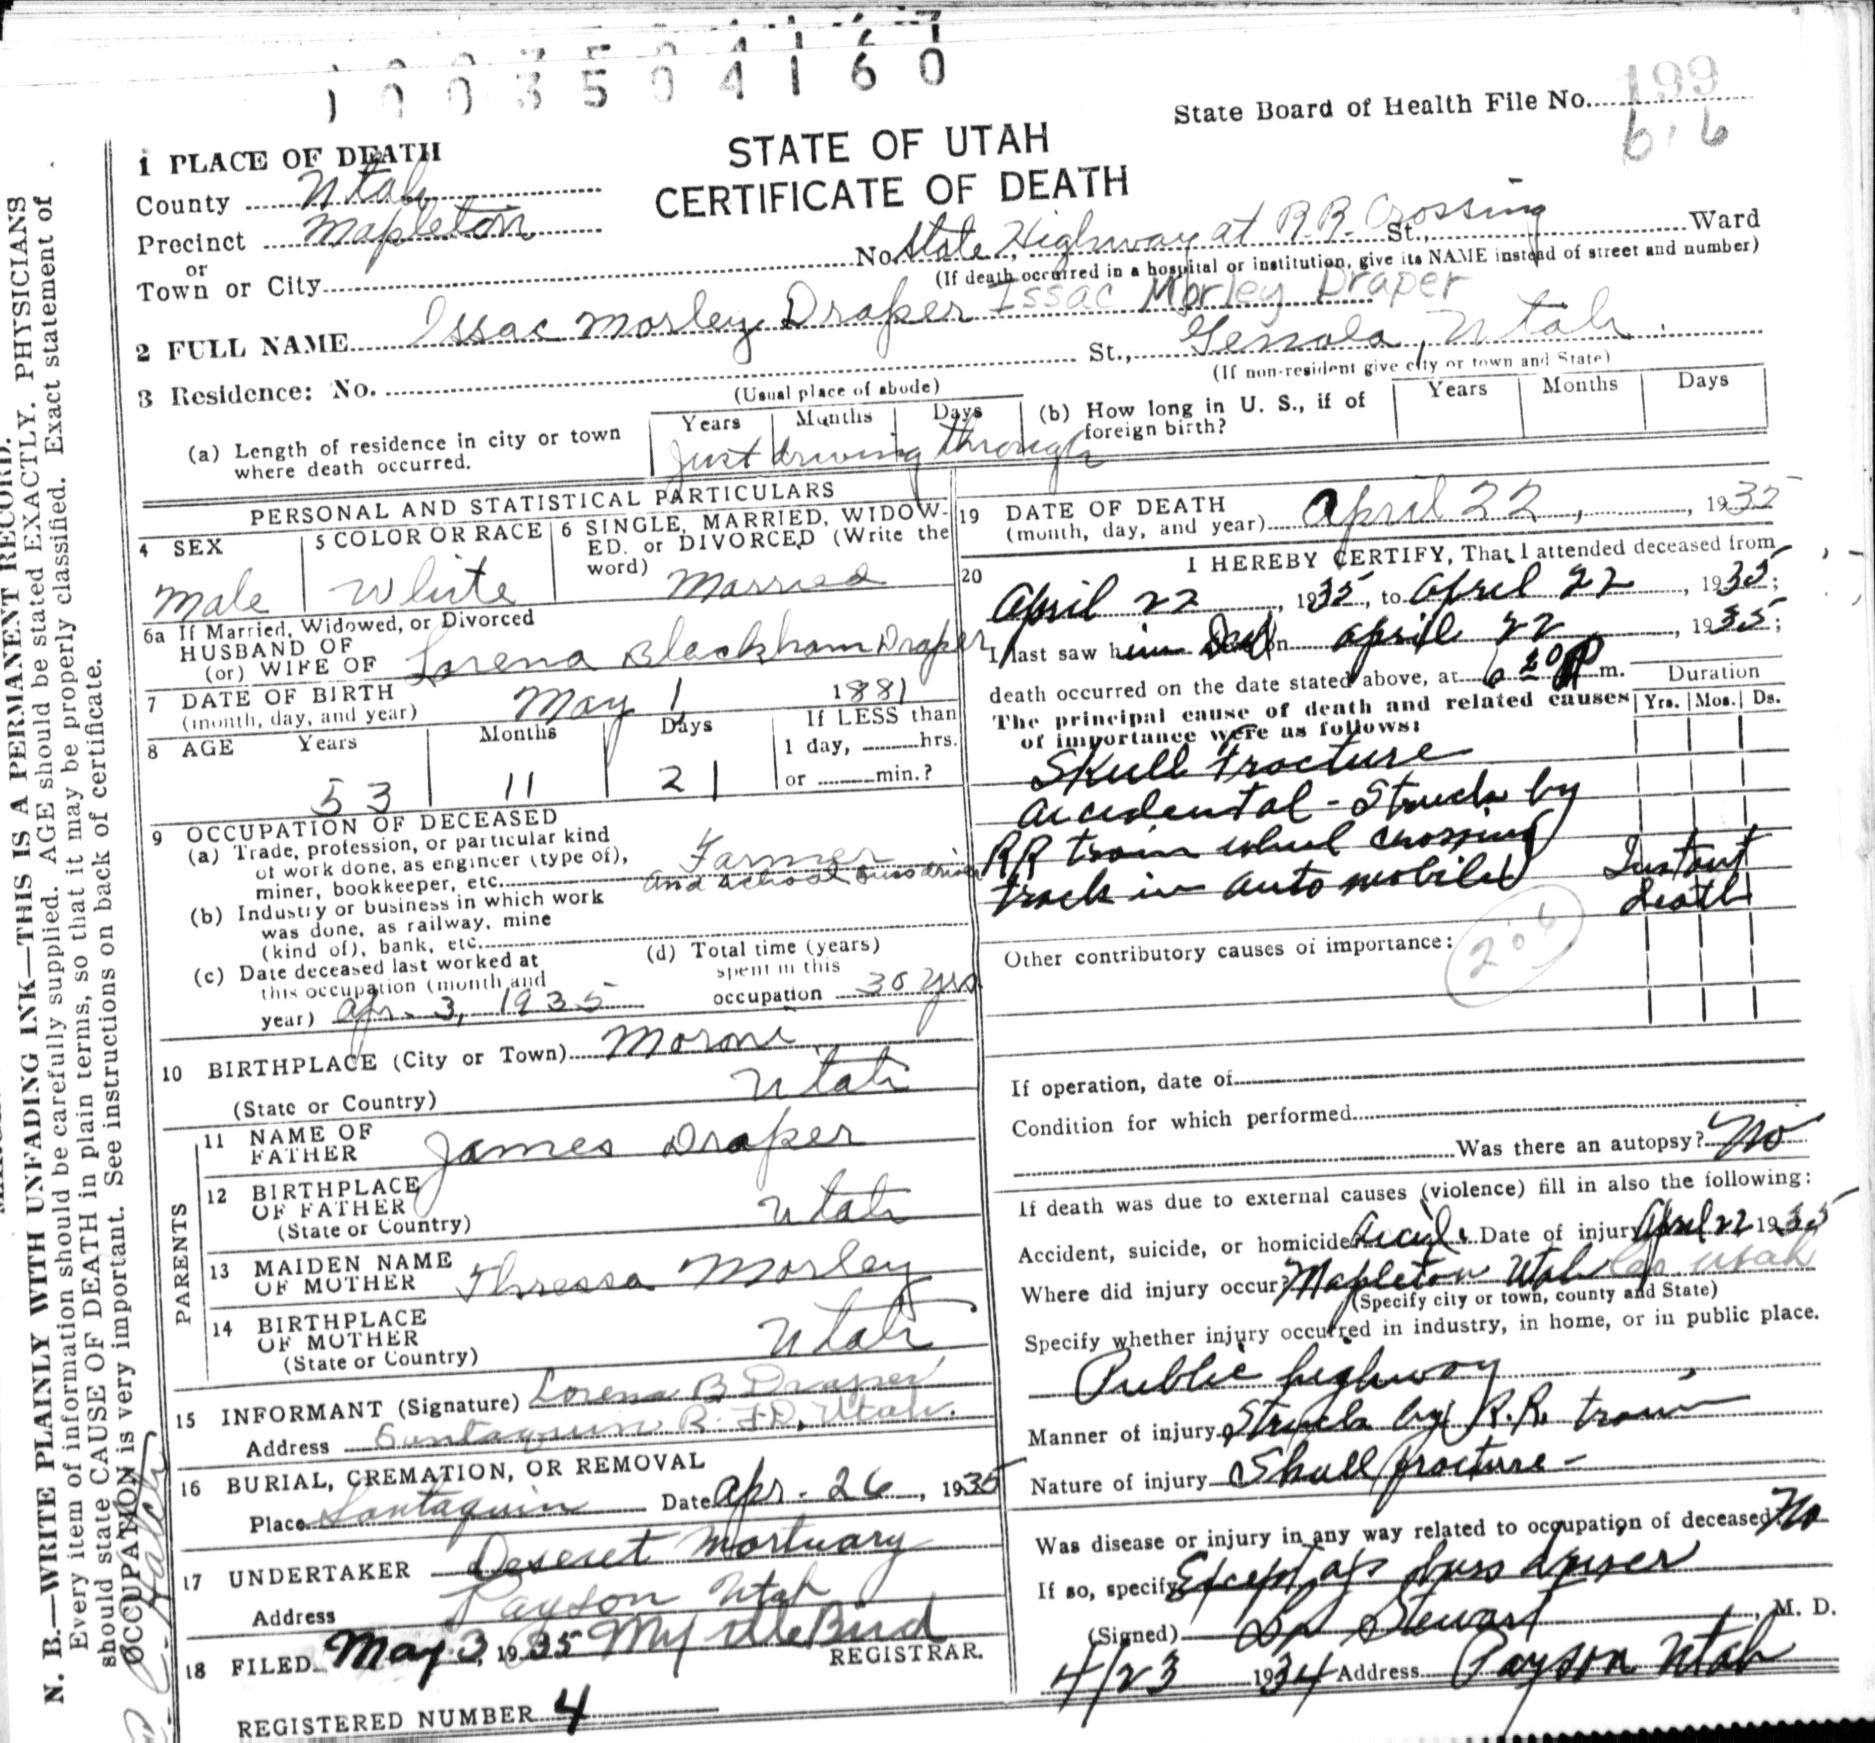 1003504160
State Board of Health File No. 199
616
STATE OF UTAH
CERTIFICATE OF DEATH
1 PLACE OF DEATH
County Utah
Precinct Mapleton
or
Town or City
No. State Highway at R.R. Crossing St., Ward
(If death occurred in a hospital or institution, give its NAME instead of street and number)
2 FULL NAME Issac Morley Draper Issac Morley Draper
3 Residence: No. St., Genola, Utah
(Usual place of abode)
(If non-resident give city or town and State)
(a) Length of residence in city or town
where death occurred.
Years Months Days
Just driving through
(b) How long in U. S., if of
foreign birth?
Years Months Days
PERSONAL AND STATISTICAL PARTICULARS
4 SEX
Male
5 COLOR OR RACE
White
6 SINGLE, MARRIED, WIDOW-
ED, or DIVORCED (Write the
word) Married
6a If Married, Widowed, or Divorced
HUSBAND OF
(or) WIFE OF Lorena Blackham Draper
7 DATE OF BIRTH
(month, day, and year) May 1 1881
8 AGE Years Months Days
53 11 21
If LESS than
1 day, hrs.
or min.?
9 OCCUPATION OF DECEASED
(a) Trade, profession, or particular kind
of work done, as engineer (type of),
miner, bookkeeper, etc.
Farmer
and school buss driver
(b) Industry or business in which work
was done, as railway, mine
(kind of), bank, etc.
(c) Date deceased last worked at
this occupation (month and
year) Apr. 3, 1935
(d) Total time (years)
spent in this
occupation 30 yrs
10 BIRTHPLACE (City or Town) Moroni
(State or Country) Utah
PARENTS
11 NAME OF
FATHER James Draper
12 BIRTHPLACE
OF FATHER
(State or Country) Utah
13 MAIDEN NAME
OF MOTHER Thressa Morley
14 BIRTHPLACE
OF MOTHER
(State or Country) Utah
15 INFORMANT (Signature) Lorena B Draper
Address Santaquin R. F D, Utah.
16 BURIAL, CREMATION, OR REMOVAL
Place Santaquin Date Apr. 26, 1935
17 UNDERTAKER Deseret Mortuary
Address Payson Utah
18 FILED May 3, 1935 Myrtle Bird
REGISTRAR.
REGISTERED NUMBER 4
19 DATE OF DEATH
(month, day, and year) April 22, 1935
20 I HEREBY CERTIFY, That I attended deceased from
April 22, 1935, to April 22, 1935;
I last saw him Dead on April 22, 1935;
death occurred on the date stated above, at 6 20 P m.
The principal cause of death and related causes
of importance were as follows:
Duration
Yrs. Mos. Ds.
Skull Fracture
accidental - Struck by
RR train while crossing
track in automobile
Instant
death
Other contributory causes of importance:
206
If operation, date of
Condition for which performed
Was there an autopsy? No
If death was due to external causes (violence) fill in also the following:
Accident, suicide, or homicide? Accid. Date of injury April 22 1935
Where did injury occur? Mapleton Utah Co Utah
(Specify city or town, county and State)
Specify whether injury occurred in industry, in home, or in public place.
Public highway
Manner of injury Struck by R.R. train
Nature of injury Skull fracture -
Was disease or injury in any way related to occupation of deceased? No
If so, specify Except as buss driver
(Signed) Stewart, M. D.
4/23 1934 Address Payson Utah
N. B.—WRITE PLAINLY WITH UNFADING INK—THIS IS A PERMANENT RECORD.
Every item of information should be carefully supplied. AGE should be stated EXACTLY. PHYSICIANS
should state CAUSE OF DEATH in plain terms, so that it may be properly classified. Exact statement of
OCCUPATION is very important. See instructions on back of certificate.